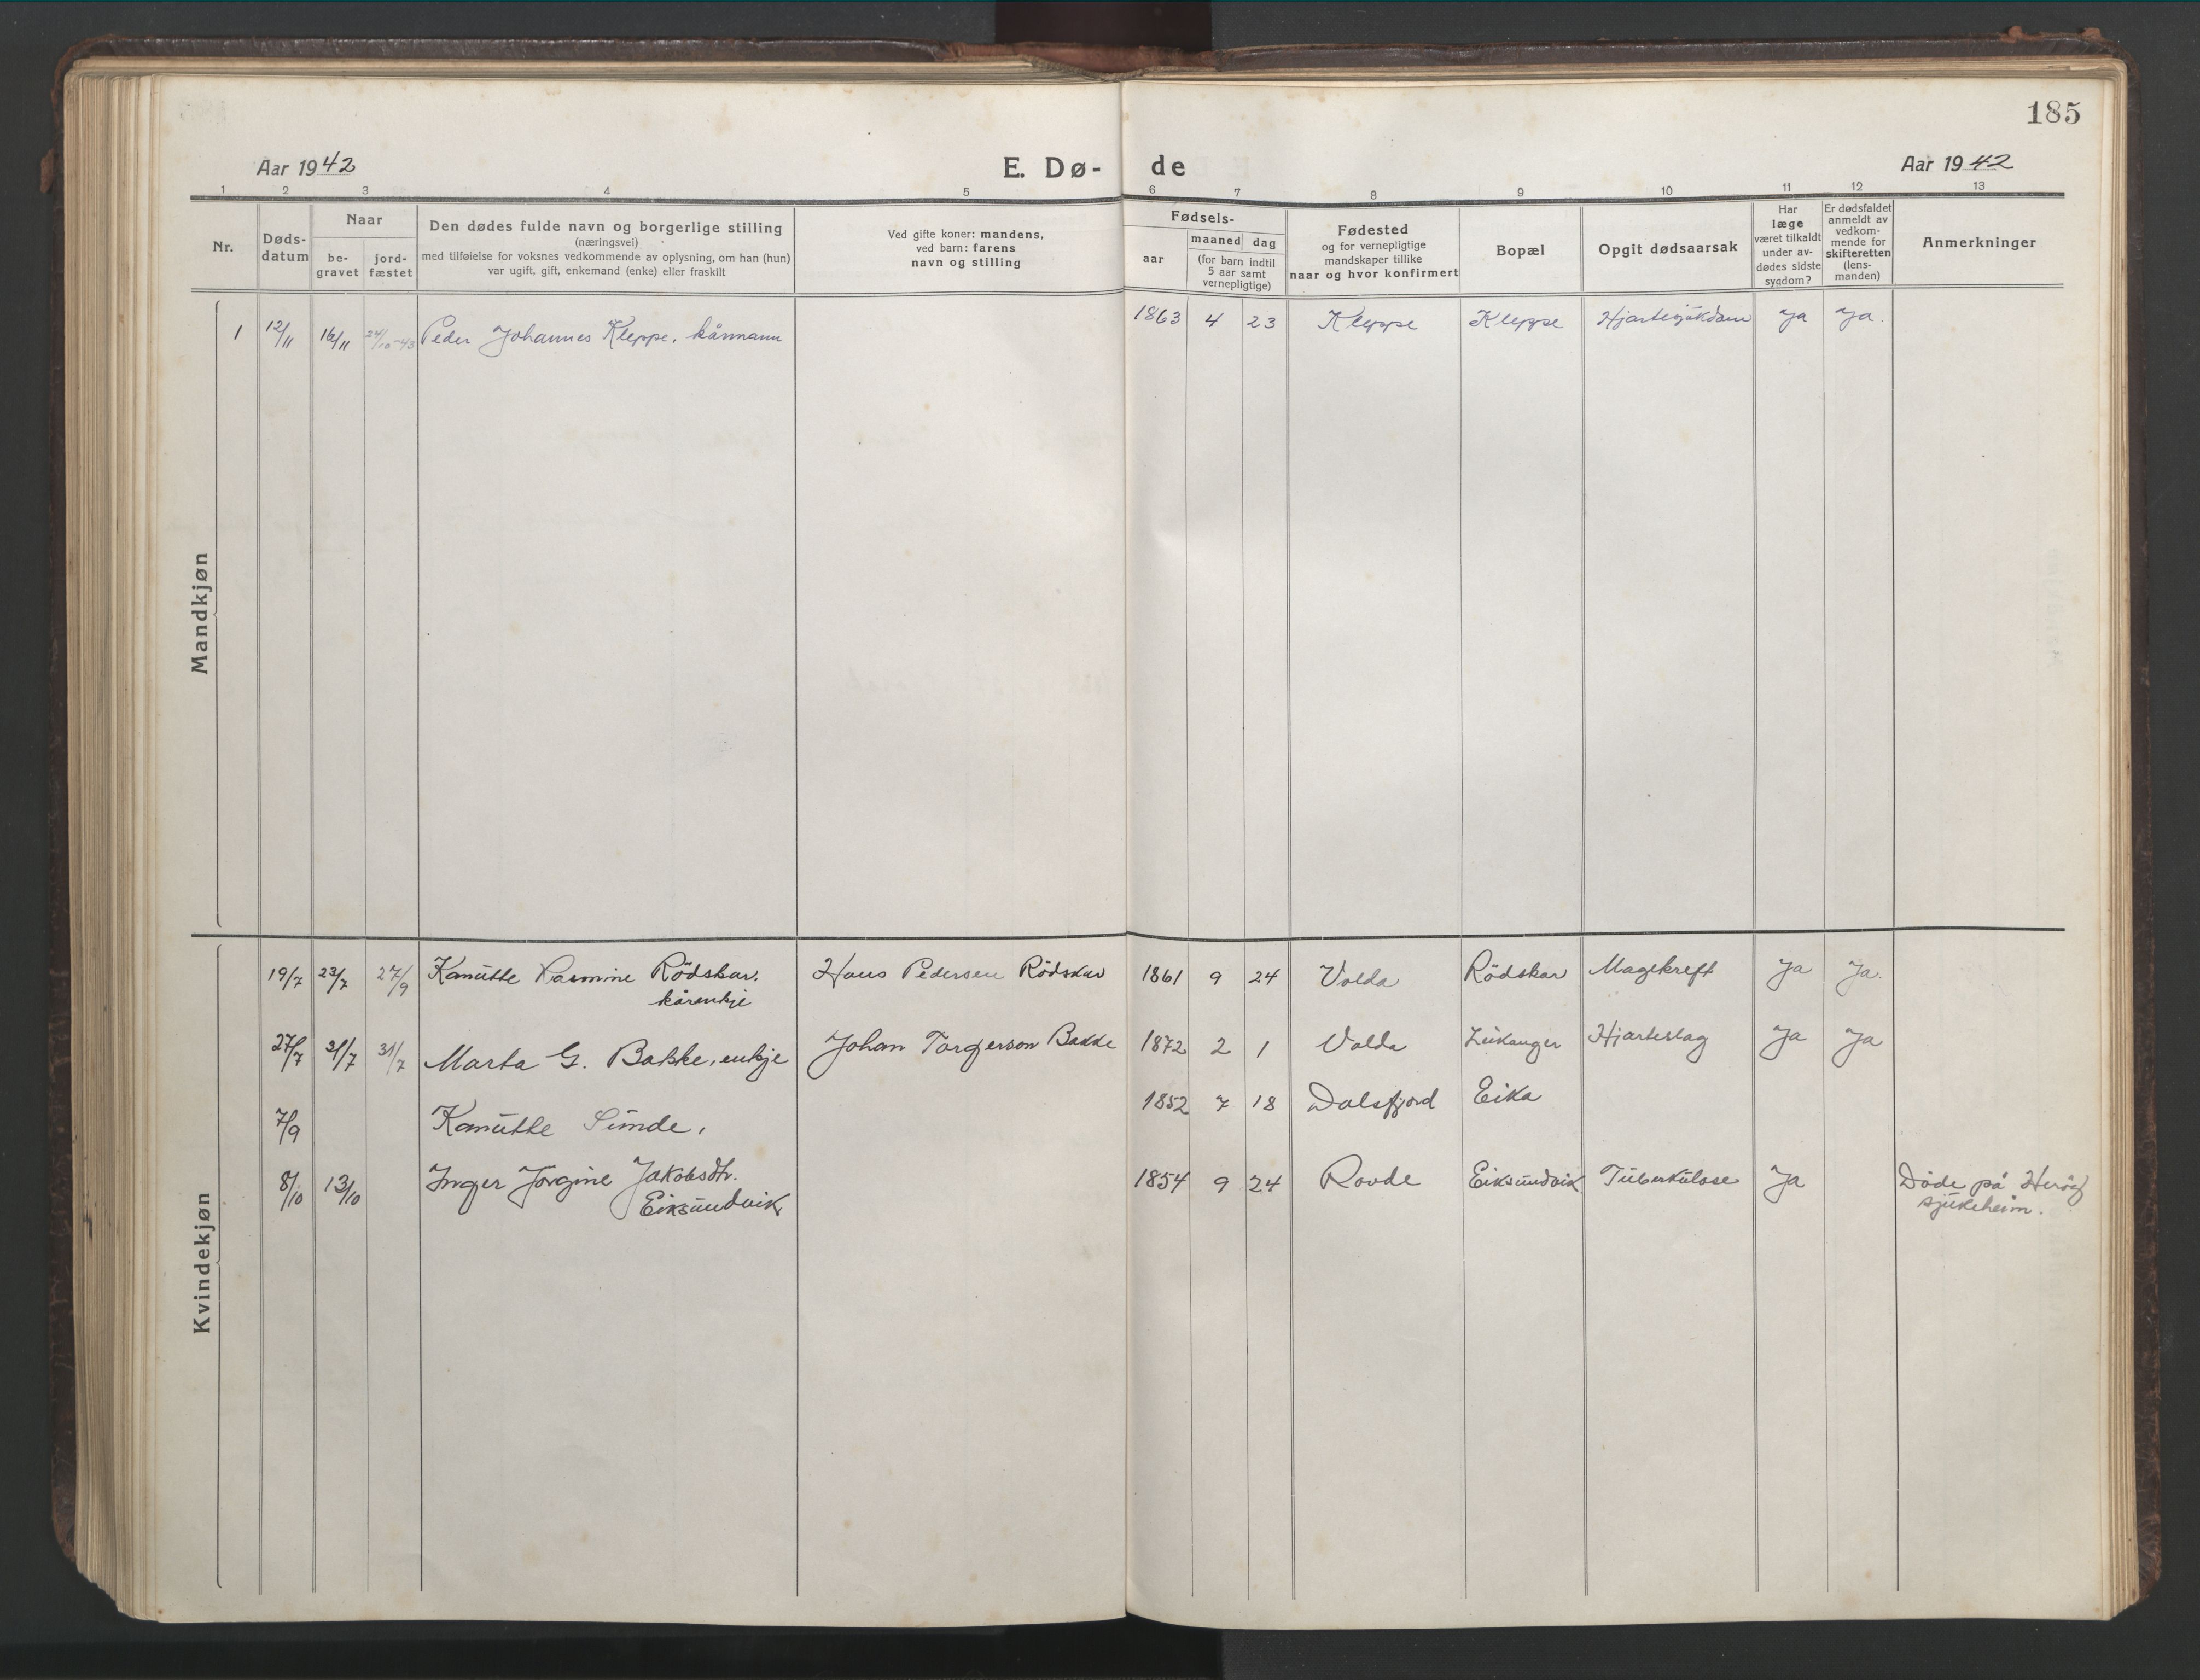 185
Aar 1942 E. Dø- de Aar 1942
1 2 3 4 5 6 7 8 9 10 11 12 13
Nr.
Døds-
datum
Naar
be-
gravet
jord-
fæstet
Den dødes fulde navn og borgerlige stilling
(næringsvei)
med tilføielse for voksnes vedkommende av oplysning, om han (hun)
var ugift, gift, enkemand (enke) eller fraskilt
Ved gifte koner: mandens,
ved barn: farens
navn og stilling
Fødsels-
aar
maaned dag
(for barn indtil
5 aar samt
vernepligtige)
Fødested
og for vernepligtige
mandskaper tillike
naar og hvor konfirmert
Bopæl
Opgit dødsaarsak
Har
læge
været tilkaldt
under av-
dødes sidste
sygdom?
Er dødsfaldet
anmeldt av
vedkom-
mende for
skifteretten
(lens-
manden)
Anmerkninger
Mandkjøn
1 12/11 16/11 24/10-43 Peder Johannes Kleppe, kårmann 1863 4 23 Kleppe Kleppe Hjartesjukdom Ja Ja.
Kvindekjøn
19/7 23/7 27/9 Kanutte Rasmine Rödskar, Hans Pedersen Rödskar 1861 9 24 Volda Rödskar Magekreft Ja Ja.
kårenkje
27/7 31/7 31/7 Marta G. Bakke, enkje Johan Torgerson Bakke 1872 2 1 Volda Leikanger Hjarteslag Ja Ja
7/9 Kanutte Sunde, 1852 7 18 Dalsfjord Eika
8/10 13/10 Inger Jörgine Jakobsdtr. 1854 9 24 Rovde Eiksundvik Tuberkulose Ja Döde på Heröy
Eiksundvik sjukeheim.